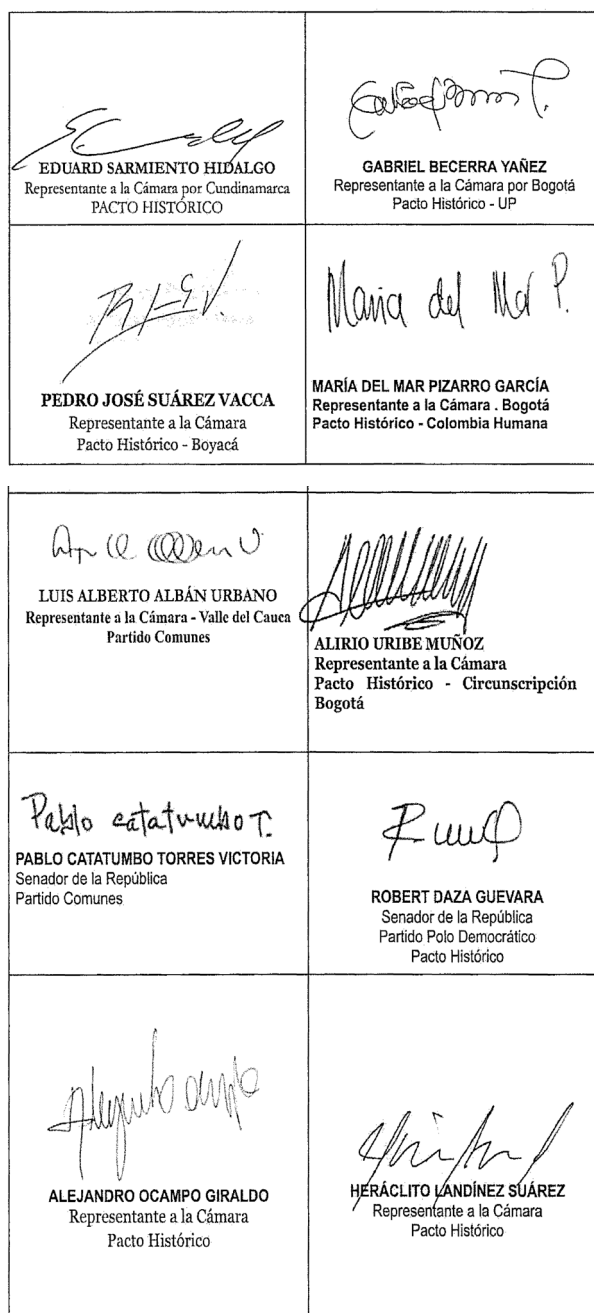 EDUARD SARMIENTO HIDALGO
Representante a la Cámara por Cundinamarca
PACTO HISTÓRICO
GABRIEL BECERRA YAÑEZ
Representante a la Cámara por Bogotá
Pacto Histórico - UP
PEDRO JOSÉ SUÁREZ VACCA
Representante a la Cámara
Pacto Histórico - Boyacá
Maria del Mar P.
MARÍA DEL MAR PIZARRO GARCÍA
Representante a la Cámara . Bogotá
Pacto Histórico - Colombia Humana
LUIS ALBERTO ALBÁN URBANO
Representante a la Cámara - Valle del Cauca
Partido Comunes
ALIRIO URIBE MUÑOZ
Representante a la Cámara
Pacto Histórico - Circunscripción
Bogotá
Pablo catatumbo T.
PABLO CATATUMBO TORRES VICTORIA
Senador de la República
Partido Comunes
ROBERT DAZA GUEVARA
Senador de la República
Partido Polo Democrático
Pacto Histórico
Alejandro Ocampo
ALEJANDRO OCAMPO GIRALDO
Representante a la Cámara
Pacto Histórico
HERÁCLITO LANDÍNEZ SUÁREZ
Representante a la Cámara
Pacto Histórico